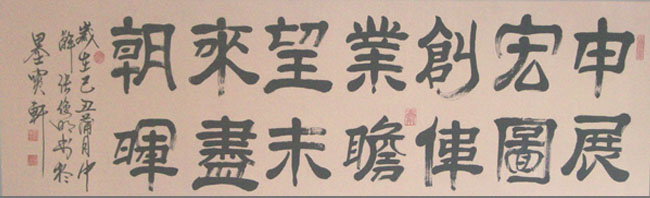 申展
宏圖
創偉
業瞻
望未
來盡
朝暉
歲在己丑蒲月中
澣张俊明书於
墨宝軒